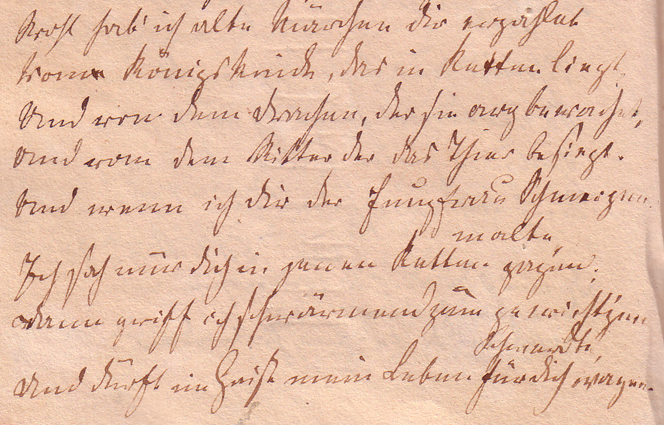 Wohl hab' ich alte Märchen dir erzählet
Vom Königskinde, das in Ketten liegt,
Und von dem Drachen, der sie arg bewachet,
Und vom dem Ritter der das Thier besiegt.
Und wenn ich dir der Jungfrau Schmerzen
malte
Ich sah nur dich in jenen Ketten zagen,
dann griff ich schwärmend zum gewichtgen
Schwerdte,
Und durft im Geist mein Leben für dich wagen.